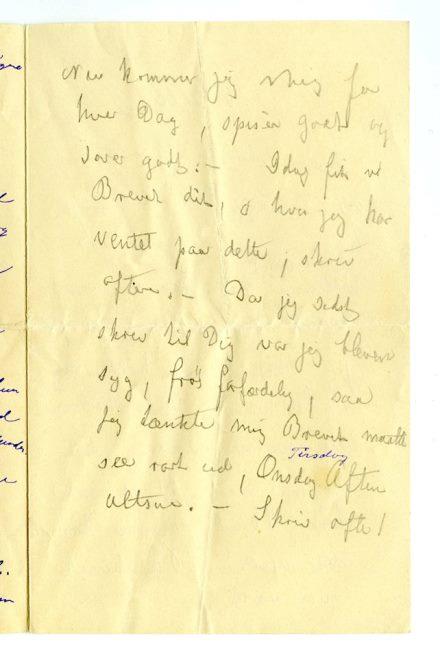 Nu kommer jeg mig for
hver Dag, spiser godt og
sover godt. – Idag fik vi
Brevet dit, o hvor jeg har
ventet paa dette, skriv
oftere. – Da jeg sidst
skrev til Dig var jeg bleven
syg, frøs forfærdelig, saa
jeg tænkte mig Brevet maatte
see rart ud, Onsdag Aften
Tirsdag
altsaa. – Skriv ofte!